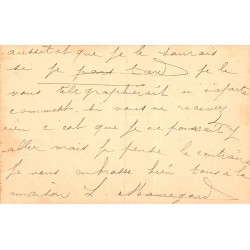 aussitot que je le saurais
si je pars tard je le
vous telegrapherait n'importe
comment. Si vous ne recevez
rien c'est que je ne pourrait y
aller mais je pense le contraire
Je vous embrasse bien tous à la
maison L